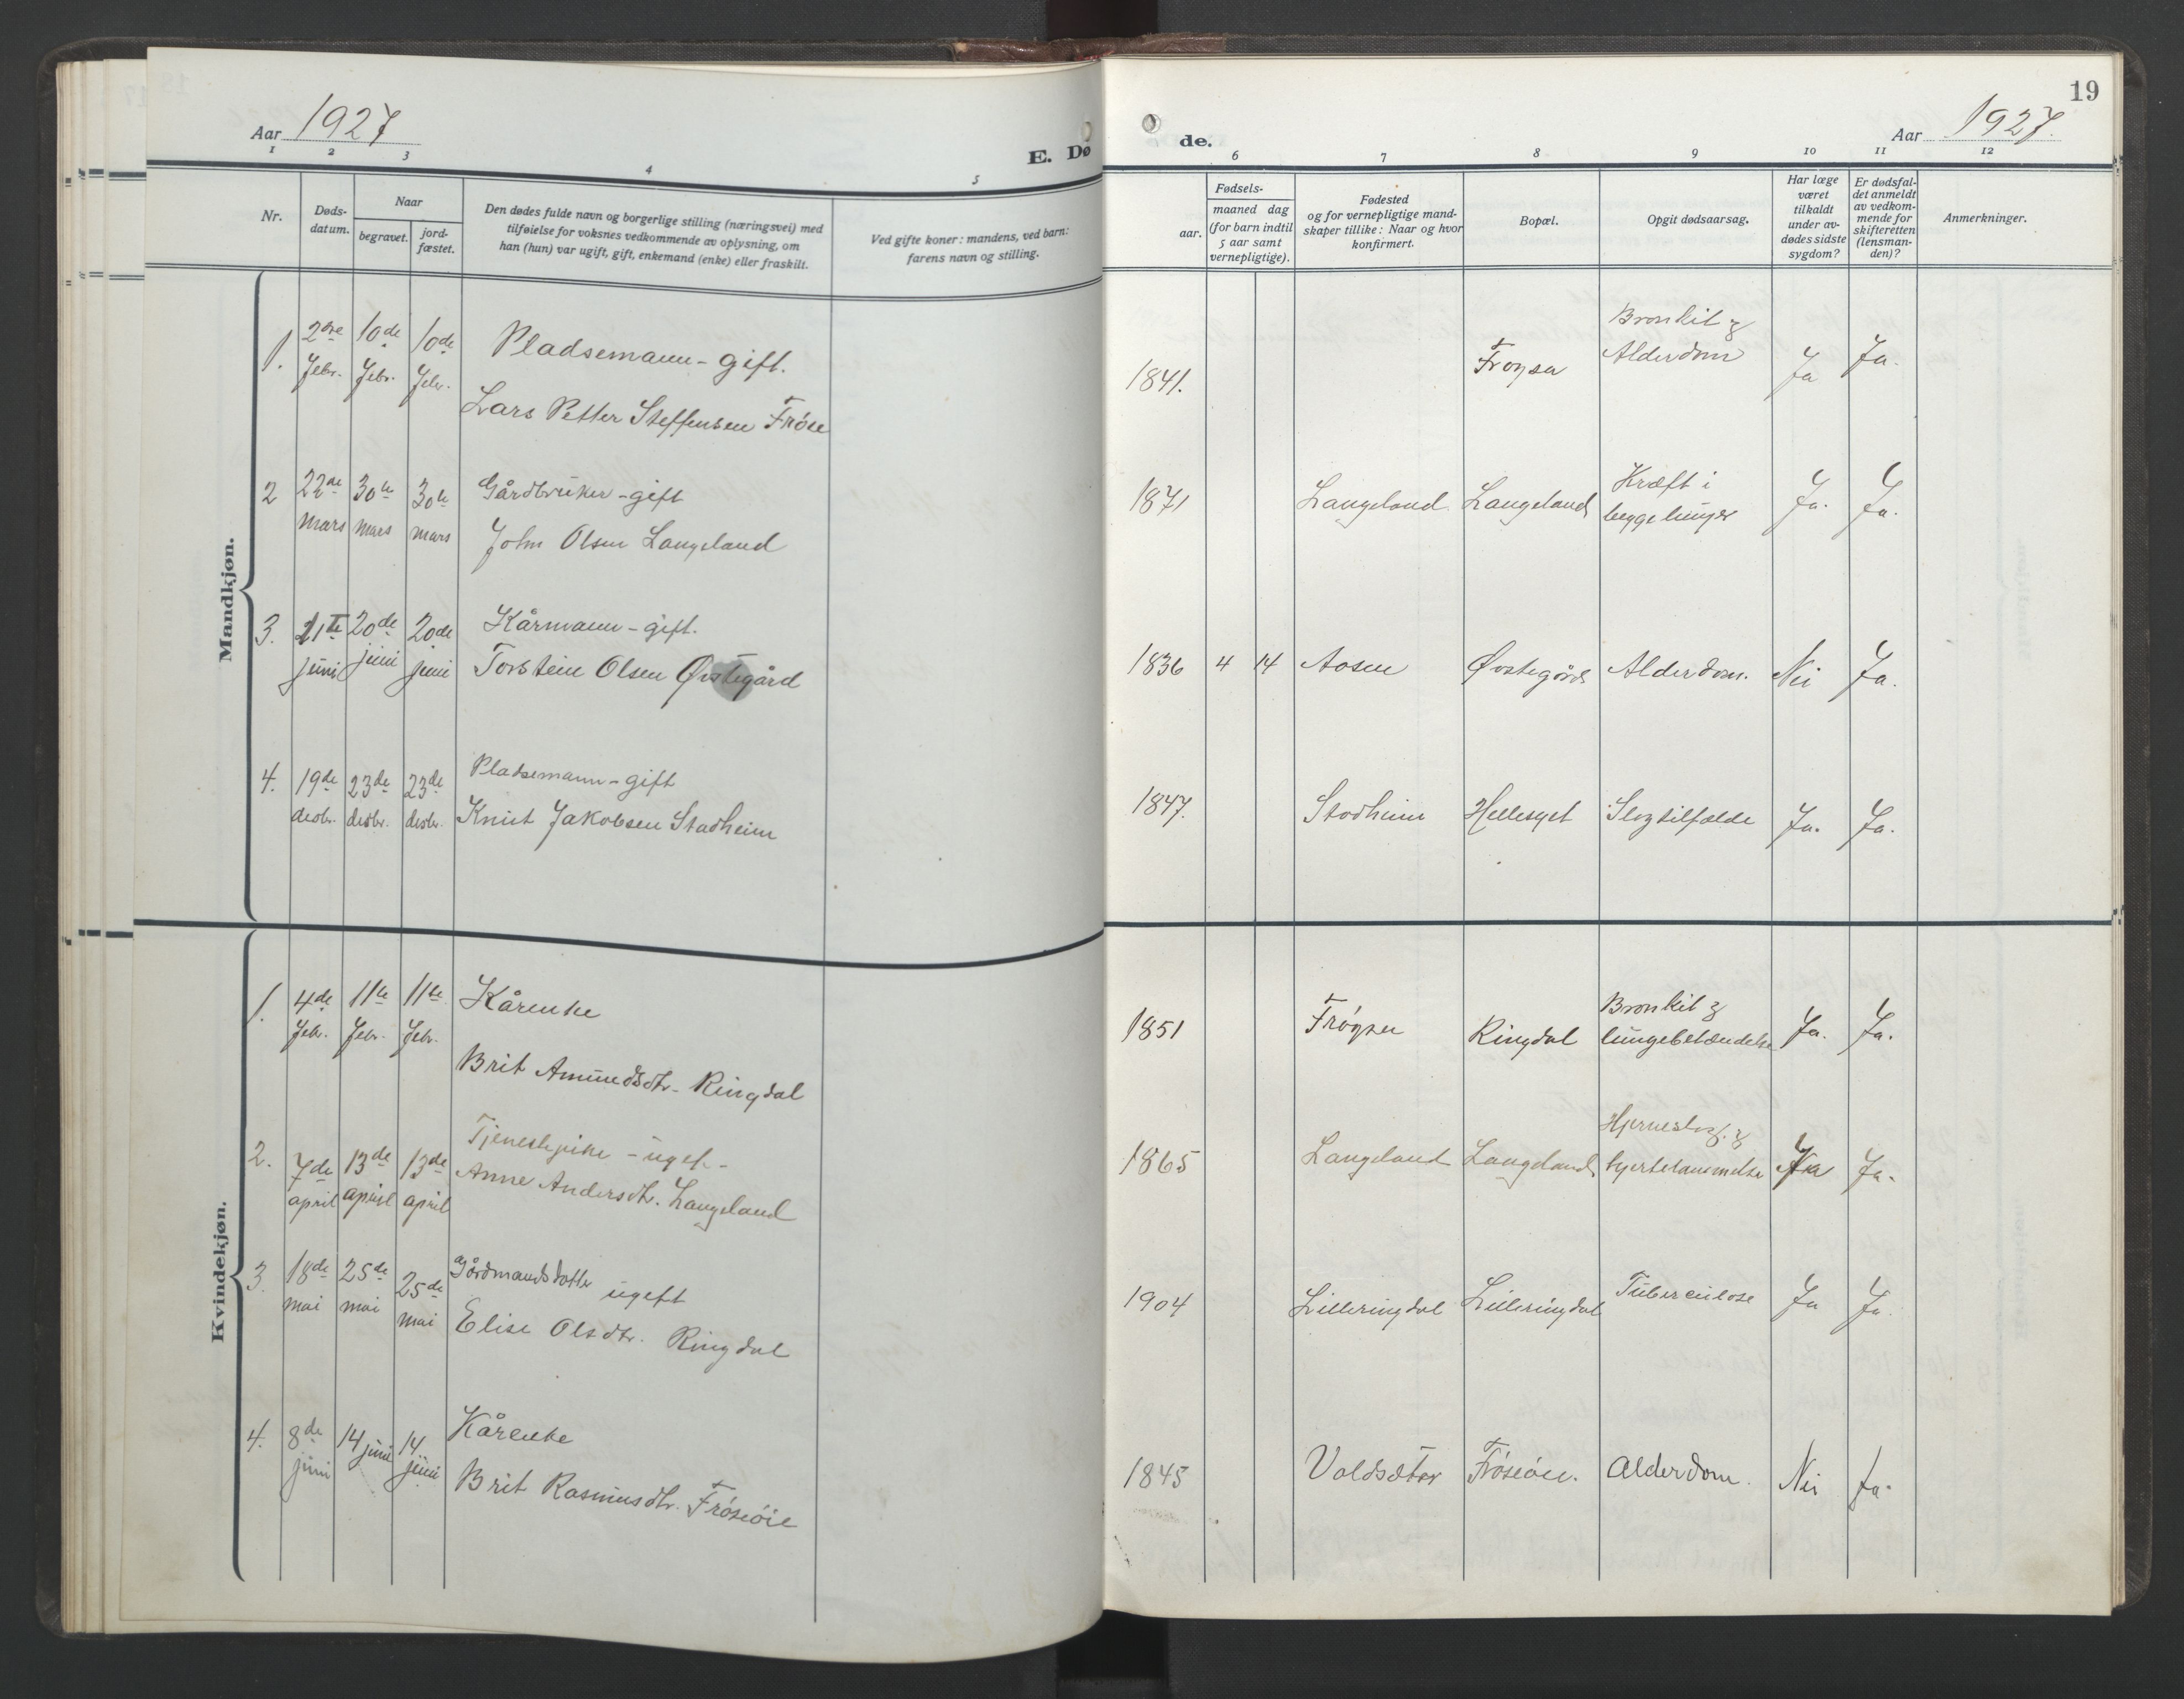 19
Aar 1927
E. Dø
de.
Aar 1927.
1 2 3 4 5 6 7 8 9 10 11 12
Nr.
Døds-
datum.
Naar
begravet.
jord-
fæstet.
Den dødes fulde navn og borgerlige stilling (næringsvei) med
tilføielse for voksnes vedkommende av oplysning, om
han (hun) var ugift, gift, enkemand (enke) eller fraskilt.
Ved gifte koner: mandens, ved barn:
farens navn og stilling.
Fødsels-
aar.
maaned dag
(for barn indtil
5 aar samt
vernepligtige).
Fødested
og for vernepligtige mand-
skaper tillike: Naar og hvor
konfirmert.
Bopæl.
Opgit dødsaarsag.
Har læge
været
tilkaldt
under av-
dødes sidste
sygdom?
Er dødsfal-
det anmeldt
av vedkom-
mende for
skifteretten
(lensman-
den)?
Anmerkninger.
Mandkjøn.
1. 2dre Febr. 10de Febr. 10de Febr.
Pladsemann - gift.
Lars Petter Steffensen Frøse
1841. Frøysa
Bronkit &
Alderdom
Ja Ja.
2 22de mars 30te mars 30te mars
Gårdbruker - gift
John Olsen Langeland
1871 Langeland Langeland
Kræft i
begge lunger
Ja. Ja.
3. 11te juni 20de juni 20de juni
Kårmann - gift.
Torstein Olsen Øvstegård
1836 4 14 Aasen Øvstegård Alderdom. Nei Ja.
4. 19de desbr. 23de desbr. 23de desbr.
Pladsemann - gift
Knut Jakobsen Stadheim
1847. Stadheim Hellesylt Slagtilfælde Ja. Ja.
Kvindekjøn.
1. 4de Febr. 11te Febr. 11te Febr.
Kårenke
Brit Amundsdtr. Ringdal
1851 Frøysa Ringdal
Bronkit &
lungebetændelse
Ja. Ja.
2. 7de april 13de april 13de april
Tjenestepike - ugift -
Anne Andersdtr. Langeland
1865 Langeland Langeland
Hjerneslag &
hjertelammelse
Ja Ja.
3. 18de mai 25de mai 25de mai
Gårdmandsdotter ugift
Elise Olsdtr. Ringdal
1904 Lilleringdal Lilleringdal Tuberculose Ja Ja.
4. 8de juni 14 juni 14. juni
Kårenke
Brit Rasmusdtr. Frøseøie
1845 Voldsæter Frøseøie. Alderdom. Nei Ja.